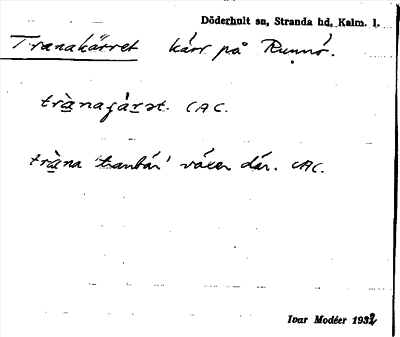 Döderhult sn, Stranda hd, Kalm. l.
Tranakärret kärr på Runnö.
trà̱najár̤ət. CAC.
trà̱na 'tranbär' växer där. CAC.
Ivar Modéer 1932